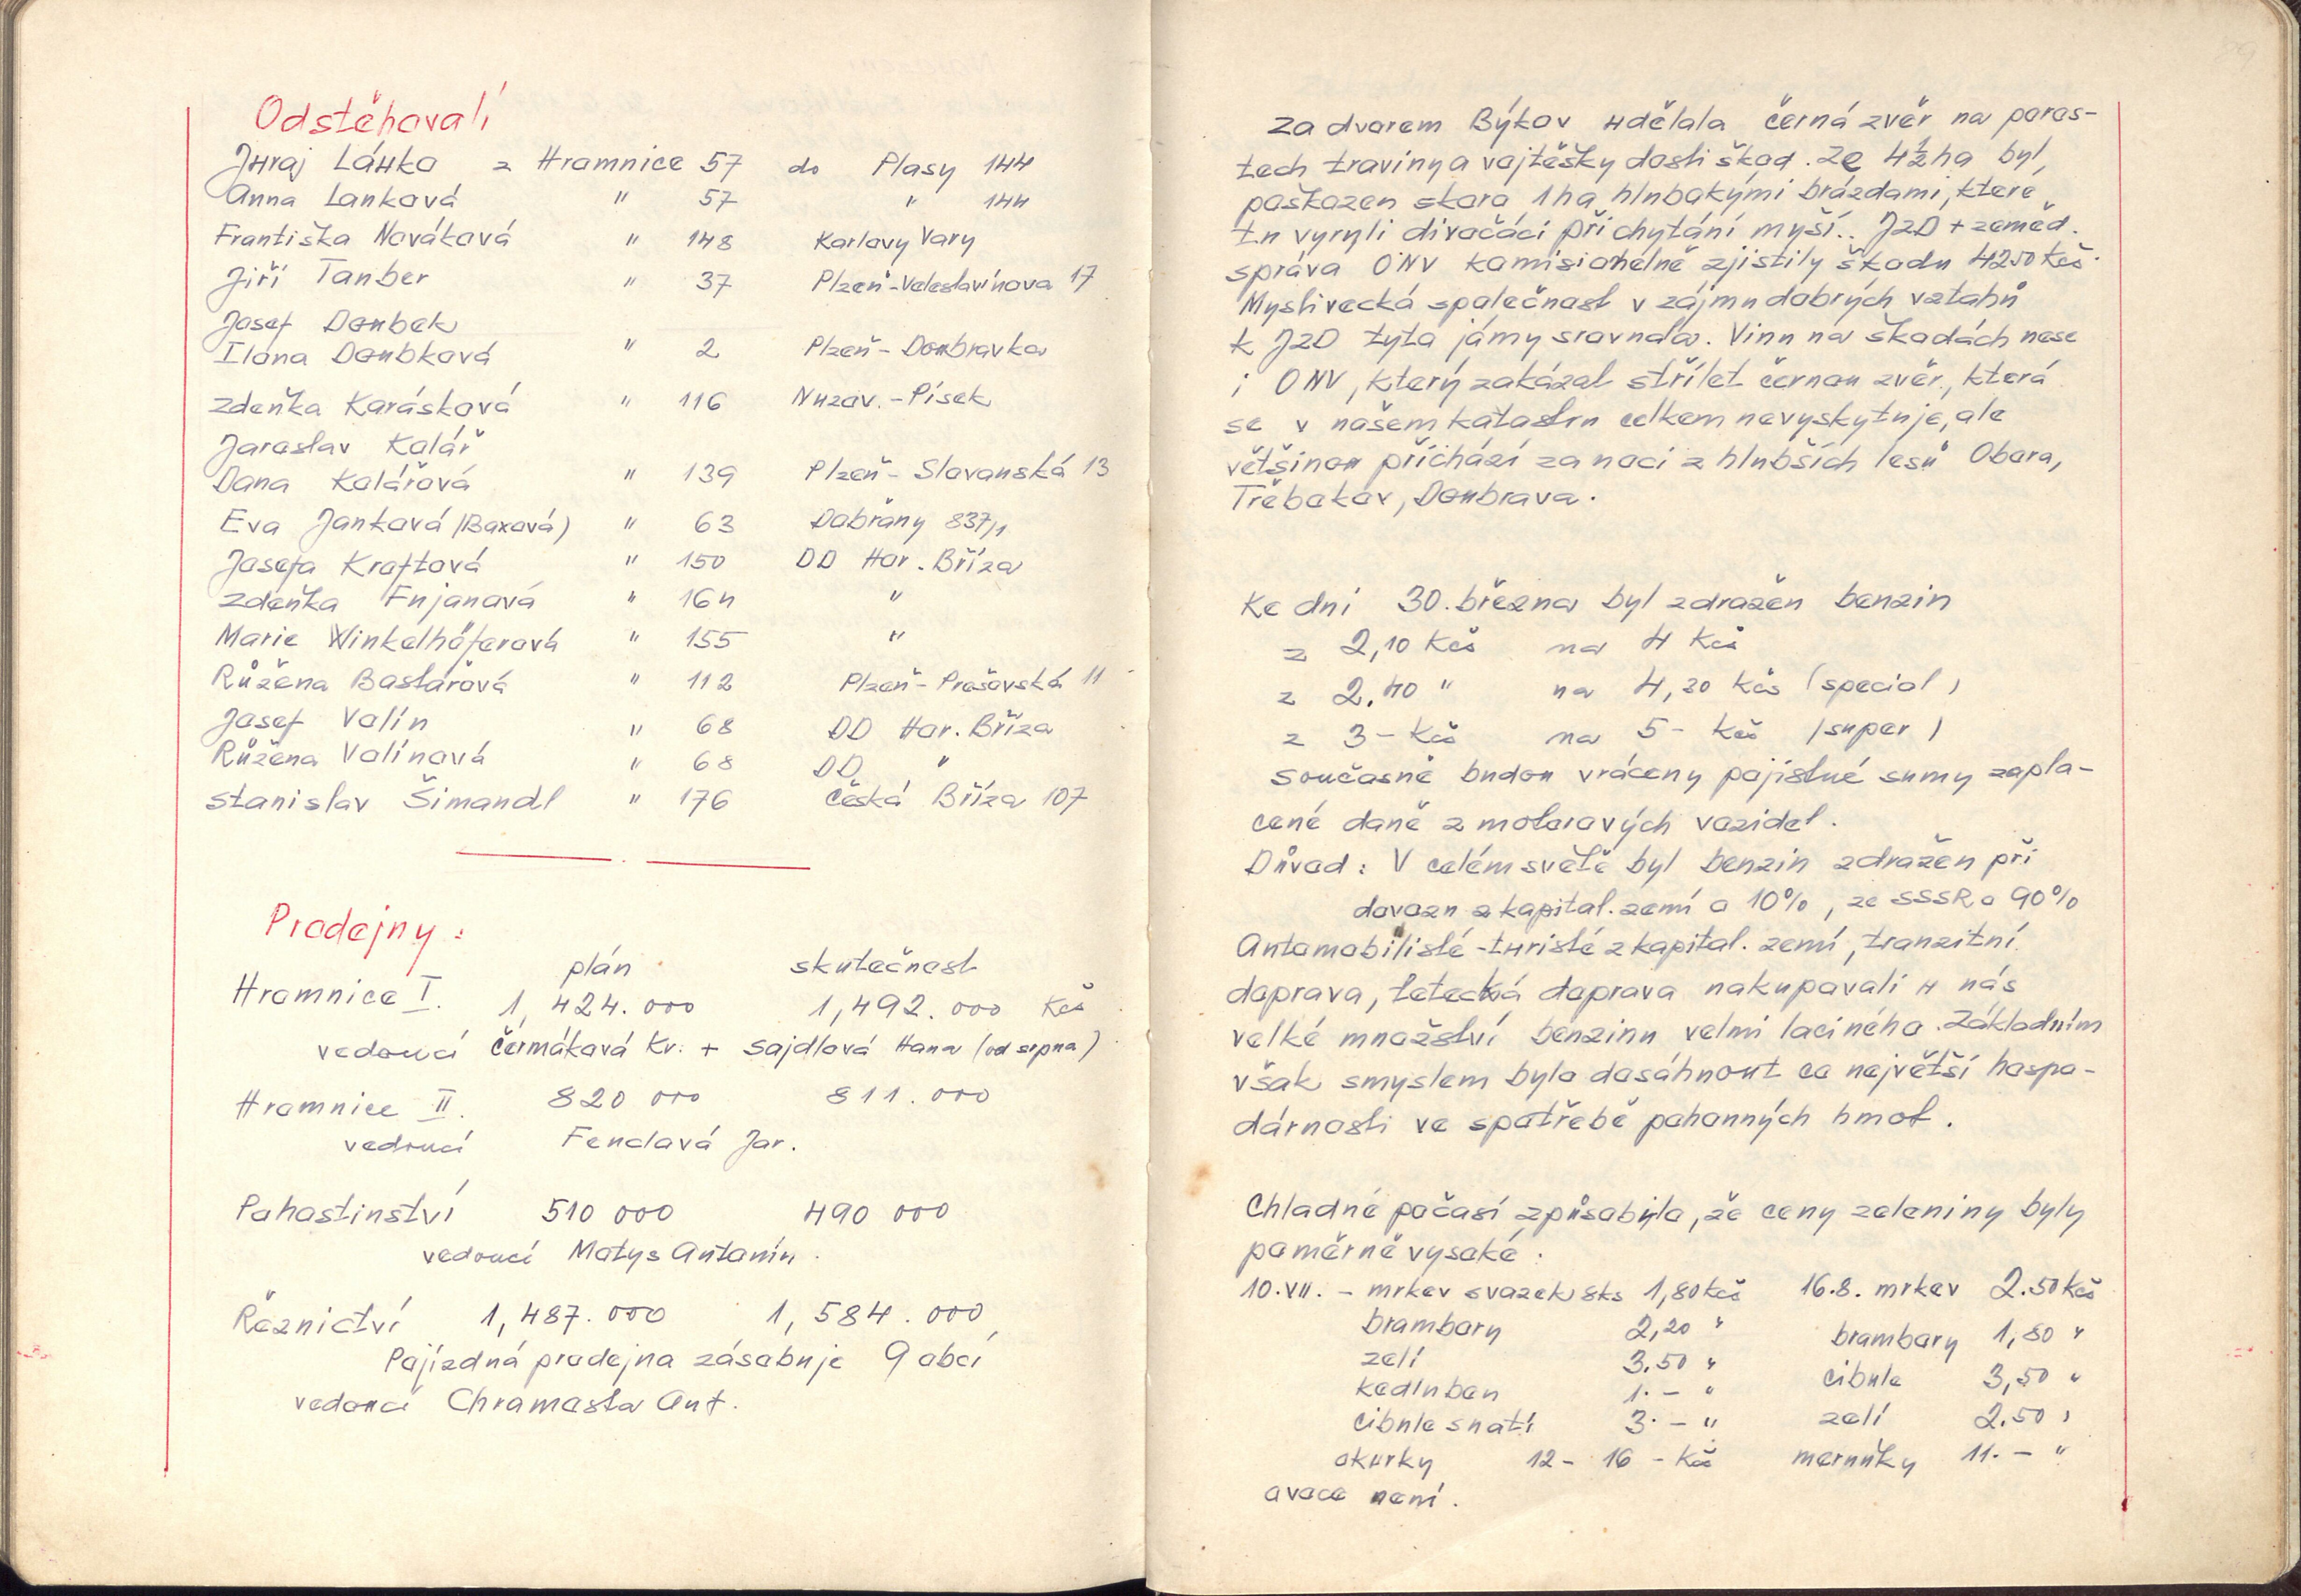 Odstěhovali
Juraj Láuko z Hromnice 57 do Plasy 144
Anna Lauková " 57 " 144
Františka Nováková " 148 Karlovy Vary
Jiří Tauber " 37 Plzeň-Veleslavínova 17
Josef Doubek
Ilona Doubková " 2 Plzeň-Doubravka
Zdeňka Karásková " 116 Nuzov.-Písek
Jaroslav Kolář
Dana Kolářová " 139 Plzeň-Slovanská 13
Eva Janková /Baxová) " 63 Dobřany 837/1
Josefa Kraftová " 150 DD Hor. Bříza
Zdeňka Fujanová " 164 "
Marie Winkelhöferová " 155 "
Růžena Bastařová " 112 Plzeň-Prešovská 11
Josef Valín " 68 DD Hor. Bříza
Růžena Valínová " 68 DD "
Stanislav Šimandl " 176 Česká Bříza 107
Prodejny:
plán skutečnost
Hromnice I. 1,424.000 1,492.000 Kčs
vedoucí Čermáková Kv. + Sajdlová Hana (od srpna)
Hromnice II. 820 000 811.000
vedoucí Fenclová Jar.
Pohostinství 510 000 490 000
vedoucí Matys Antonín.
Řeznictví 1,487.000 1,584.000
Pojízdná prodejna zásobuje 9 obcí
vedoucí Chramosta Ant.
Za dvorem Býkov udělala černá zvěř na poros-
tech traviny a vojtěšky dosti škod. Ze 4½ ha byl
poškozen skoro 1 ha hlubokými brázdami, které
tu vyryli divočáci při chytání myší.. JZD + zeměd.
správa ONV komisionelně zjistily škodu 4250 Kčs.
Myslivecká společnost v zájmu dobrých vztahů
k JZD tyto jámy srovnala. Vinu na škodách nese
i ONV, který zakázal střílet černou zvěř, která
se v našem katastru celkem nevyskytuje, ale
většinou přichází za noci z hlubších lesů Obora,
Třebokov, Doubrava.
Ke dni 30. března byl zdražen benzin
z 2,10 Kčs na 4 Kčs
z 2.40 " na 4,20 Kčs (special)
z 3- Kčs na 5- Kčs /super)
Současně budou vráceny pojistné sumy zapla-
cené daně z motorových vozidel.
Důvod: V celém světě byl benzin zdražen při
dovozu z kapital. zemí o 10%, ze SSSR o 90%
Automobilisté-turisté z kapital. zemí, tranzitní
doprava, letecká doprava nakupovali u nás
velké množství benzinu velmi laciného. Základním
však smyslem bylo dosáhnout co největší hospo-
dárnosti ve spotřebě pohonných hmot.
Chladné počasí způsobilo, že ceny zeleniny byly
poměrně vysoké.
10.VII. - mrkev svazek 8ks 1,80 Kčs 16.8. mrkev 2.50 Kčs
brambory 2,20 " brambory 1,80 "
zelí 3.50 " cibule 3,50 "
kedluben 1.- " zelí 2.50 "
cibule s natí 3.- " meruňky 11.- "
okurky 12- 16 - Kčs
ovoce není.